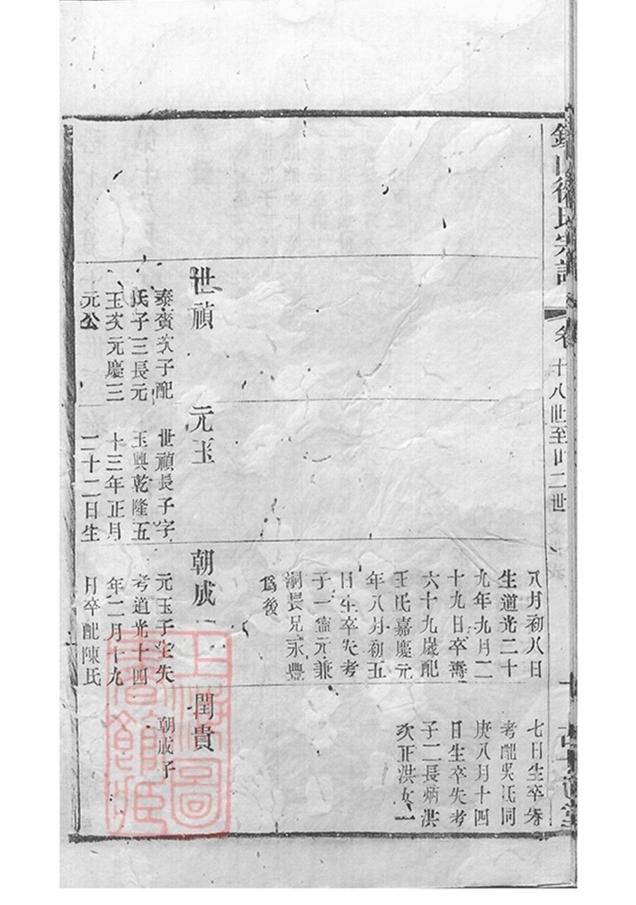 徐氏宗譜
卷
十八世至廿二世
八月初八日
生道光二十
九年九月二
十九日卒壽
六十九歲配
王氏嘉慶元
年八月初五
日生卒失考
子一憲元兼
嗣長兄永豐
爲後
七日生卒失
考配吳氏同
庚八月十四
日生卒失考
子二長炳洪
次正洪女一
世禎
泰賓次子配
氏子三長元
玉次元慶三
元公
元玉
世禎長子字
玉興乾隆五
十三年正月
二十二日生
朝成
元玉子生失
考道光十四
年二月十九
日卒配陳氏
閏貴
朝成子
上海圖
書館